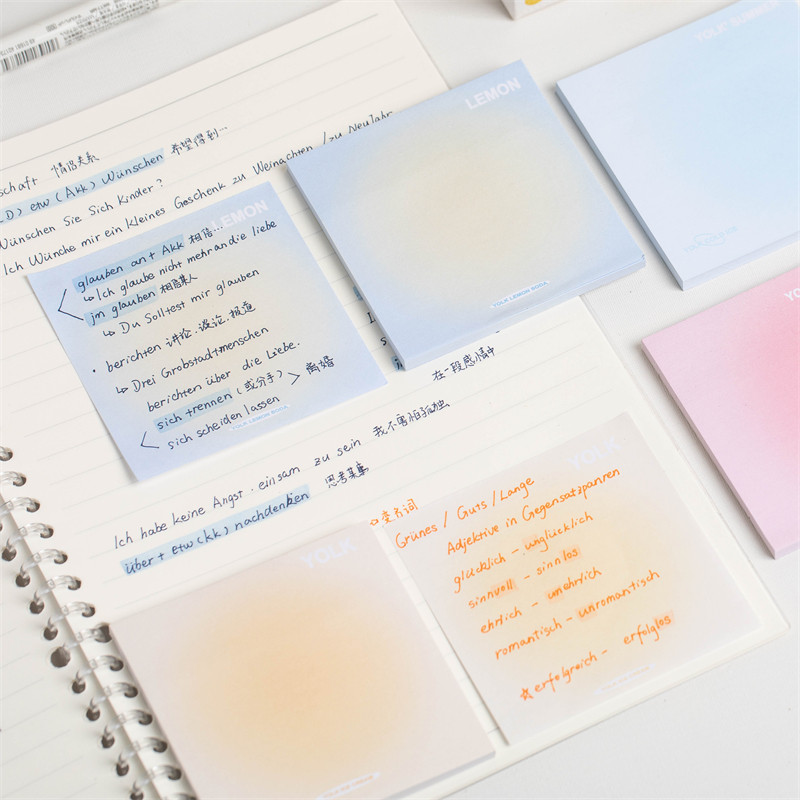 schaft 情侣关系
D) etw (Akk) Wünschen 希望得到...
Wünschen Sie Sich Kinder?
Ich Wünche mir ein kleines Geschenk zu Weinachten / zu Neujahr
LEMON
glauben ant Akk 相信...
↳ Ich glaube nicht mehr an die liebe
jm glauben 相信某人
↳ Du Solltest mir glauben
• berichten 讲论.谈论.报道
↳ Drei Grobstadtmenschen
berichten über die Liebe.
sich trennen (或分手)
sich scheiden lassen
离婚
YOLK LEMON SODA
LEMON
YOLK LEMON SODA
YOLK SUMMER
在一段感情中
Ich habe keine Angst. einsam zu sein 我不害怕孤独
über + etw (kk) nachdenken 思考某事
YOLK
YOLK
变名词
Grunes / Guts / Lange
Adjektive in Gegensatzpanren
glücklich - unglücklich
sinnvoll - sinnlos
ehrlich - unehrlich
romantisch - unromantisch
☆ erfolgreich - erfolglos
YO